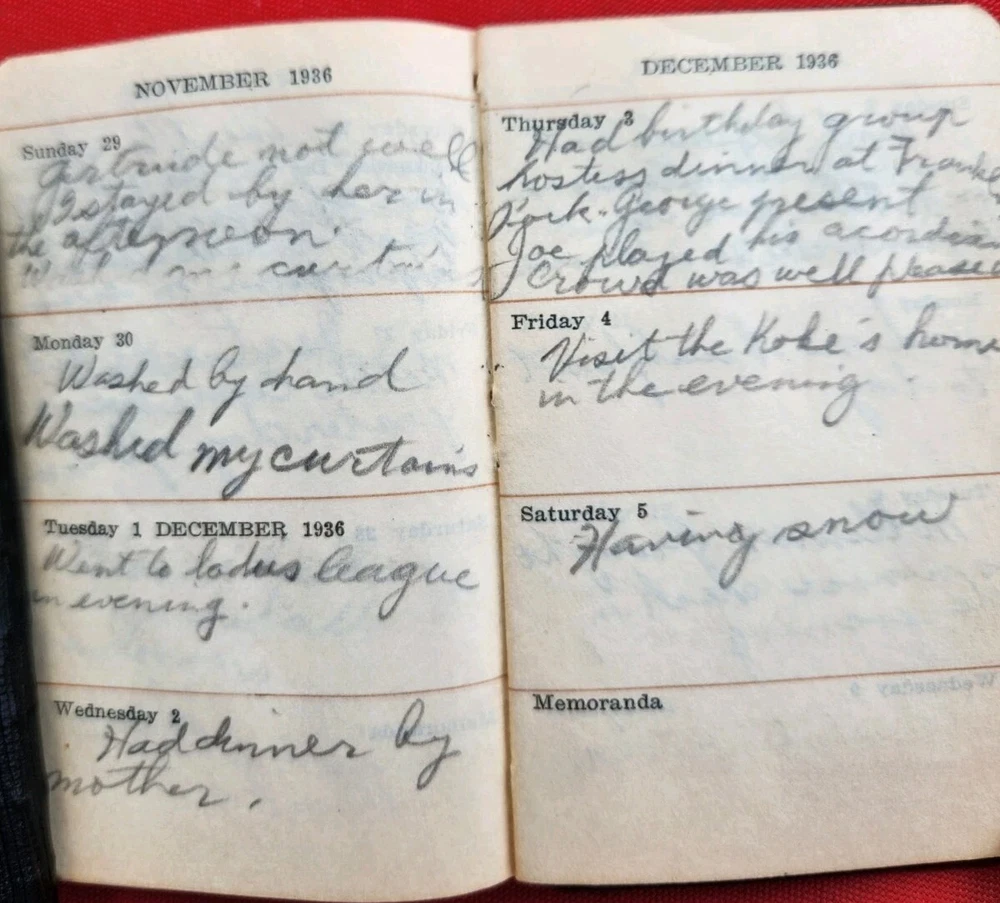 NOVEMBER 1936
Sunday 29
Gertrude not well
I stayed by her in
the afternoon.
curtains
Monday 30
Washed by hand
Washed my curtains
Tuesday 1 DECEMBER 1936
Went to ladies league
in evening.
Wednesday 2
Had dinner by
mother.
DECEMBER 1936
Thursday 3
Had birthday group
hostess dinner at
York. George present
Joe played his acordian
Crowd was well pleased
Friday 4
Visit the Koke's home
in the evening
Saturday 5
Having snow
Memoranda